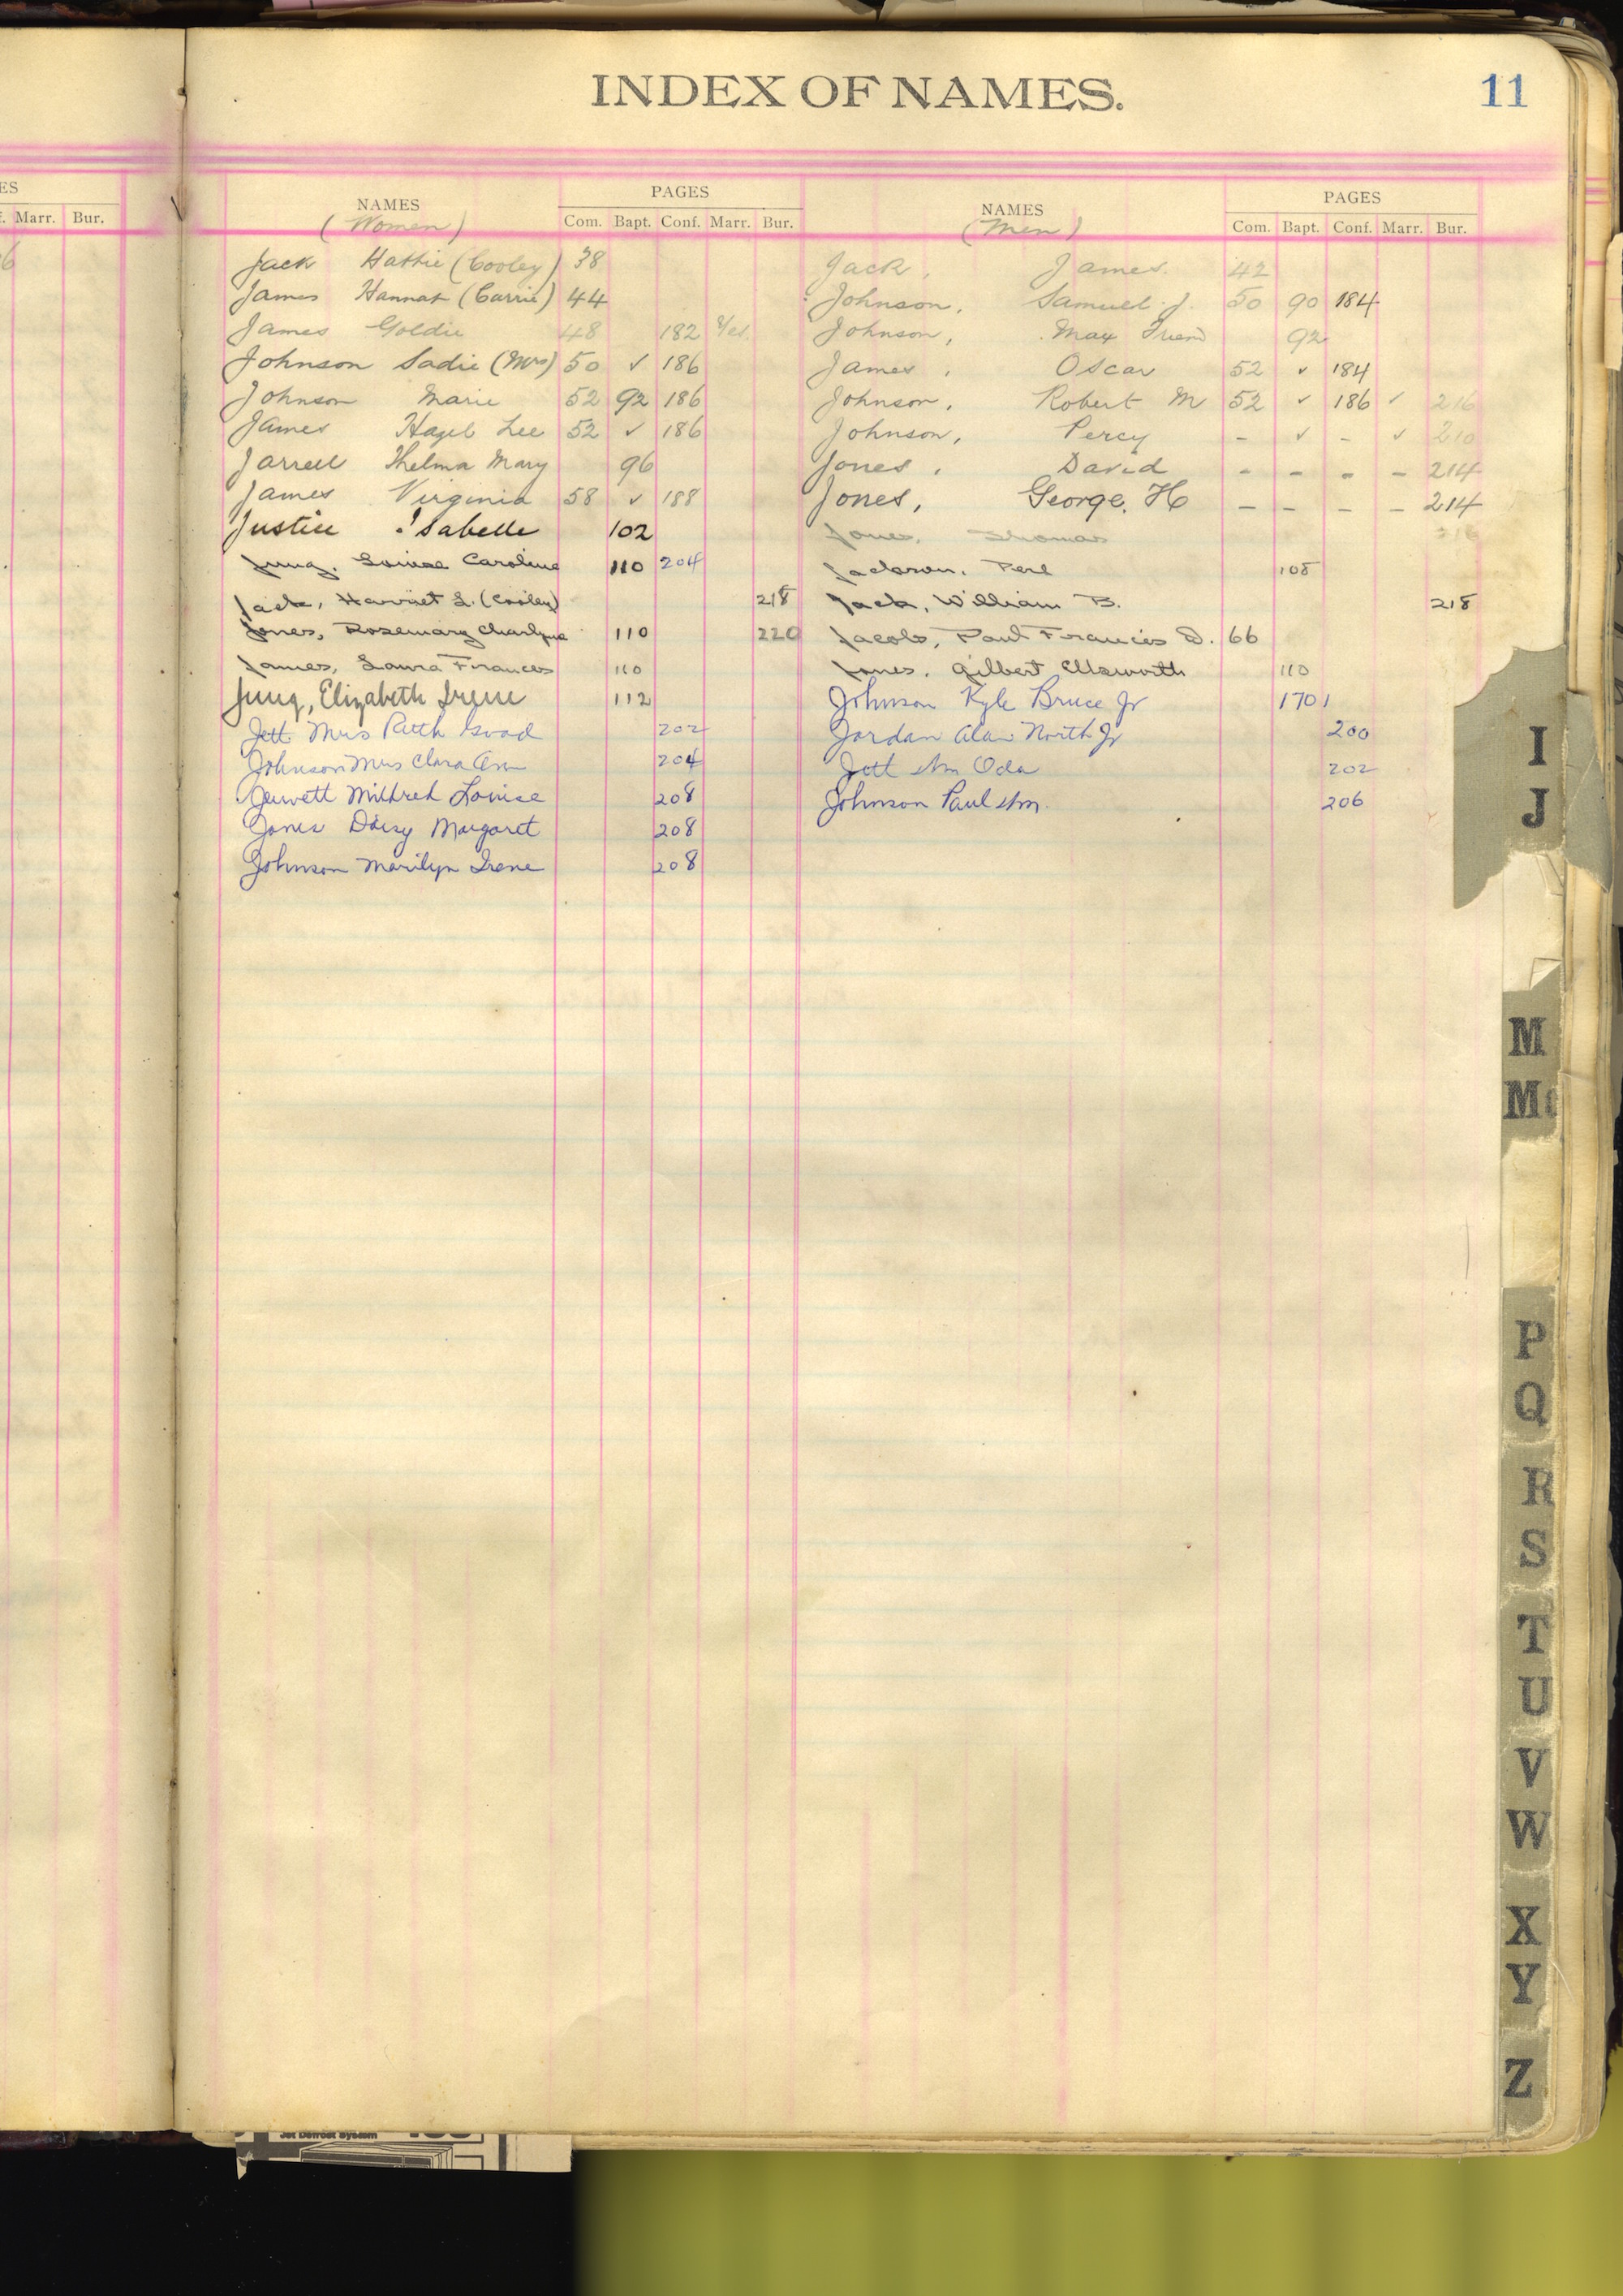 INDEX OF NAMES.
11
ES
Marr. Bur.
6
NAMES
(Women)
PAGES
Com. Bapt. Conf. Marr. Bur.
Jack Hattie (Cooley) 38
James Hannah (Carrie) 44
James Goldie 48 182 Yes.
Johnson Sadie (Mrs) 50 ✓ 186
Johnson Marie 52 92 186
James Hazel Lee 52 ✓ 186
Jarrell Thelma Mary 96
James Virginia 58 ✓ 188
Justice Isabelle 102
Jung, Louise Caroline 110 204
Jack, Harriet L. (Cooley) 218
Jones, Rosemary Charlyne 110 220
James, Laura Frances 110
Jung, Elizabeth Irene 112
Jett Mrs Ruth Goad 202
Johnson Mrs Clara Ann 204
Jewett Mildred Louise 208
Jones Daisy Margaret 208
Johnson Marilyn Irene 208
NAMES
(Men)
PAGES
Com. Bapt. Conf. Marr. Bur.
Jack, James. 42
Johnson, Samuel J. 50 90 184
Johnson, Max Friend 92
James, Oscar 52 ✓ 184
Johnson, Robert M 52 ✓ 186 ✓ 216
Johnson, Percy – ✓ – ✓ 210
Jones, David - - - – 214
Jones, George. H – – – – 214
Jones, Thomas 216
Jackson, Perl 108
Jack, William B. 218
Jacobs, Paul Francis D. 66
Jones, Gilbert Ellsworth 110
Johnson Kyle Bruce Jr 1701
Jordan Alan North Jr 200
Jett Wm Oda 202
Johnson Paul Wm. 206
I
J
M
Mc
P
Q
R
S
T
U
V
W
X
Y
Z
Jet Defrost System